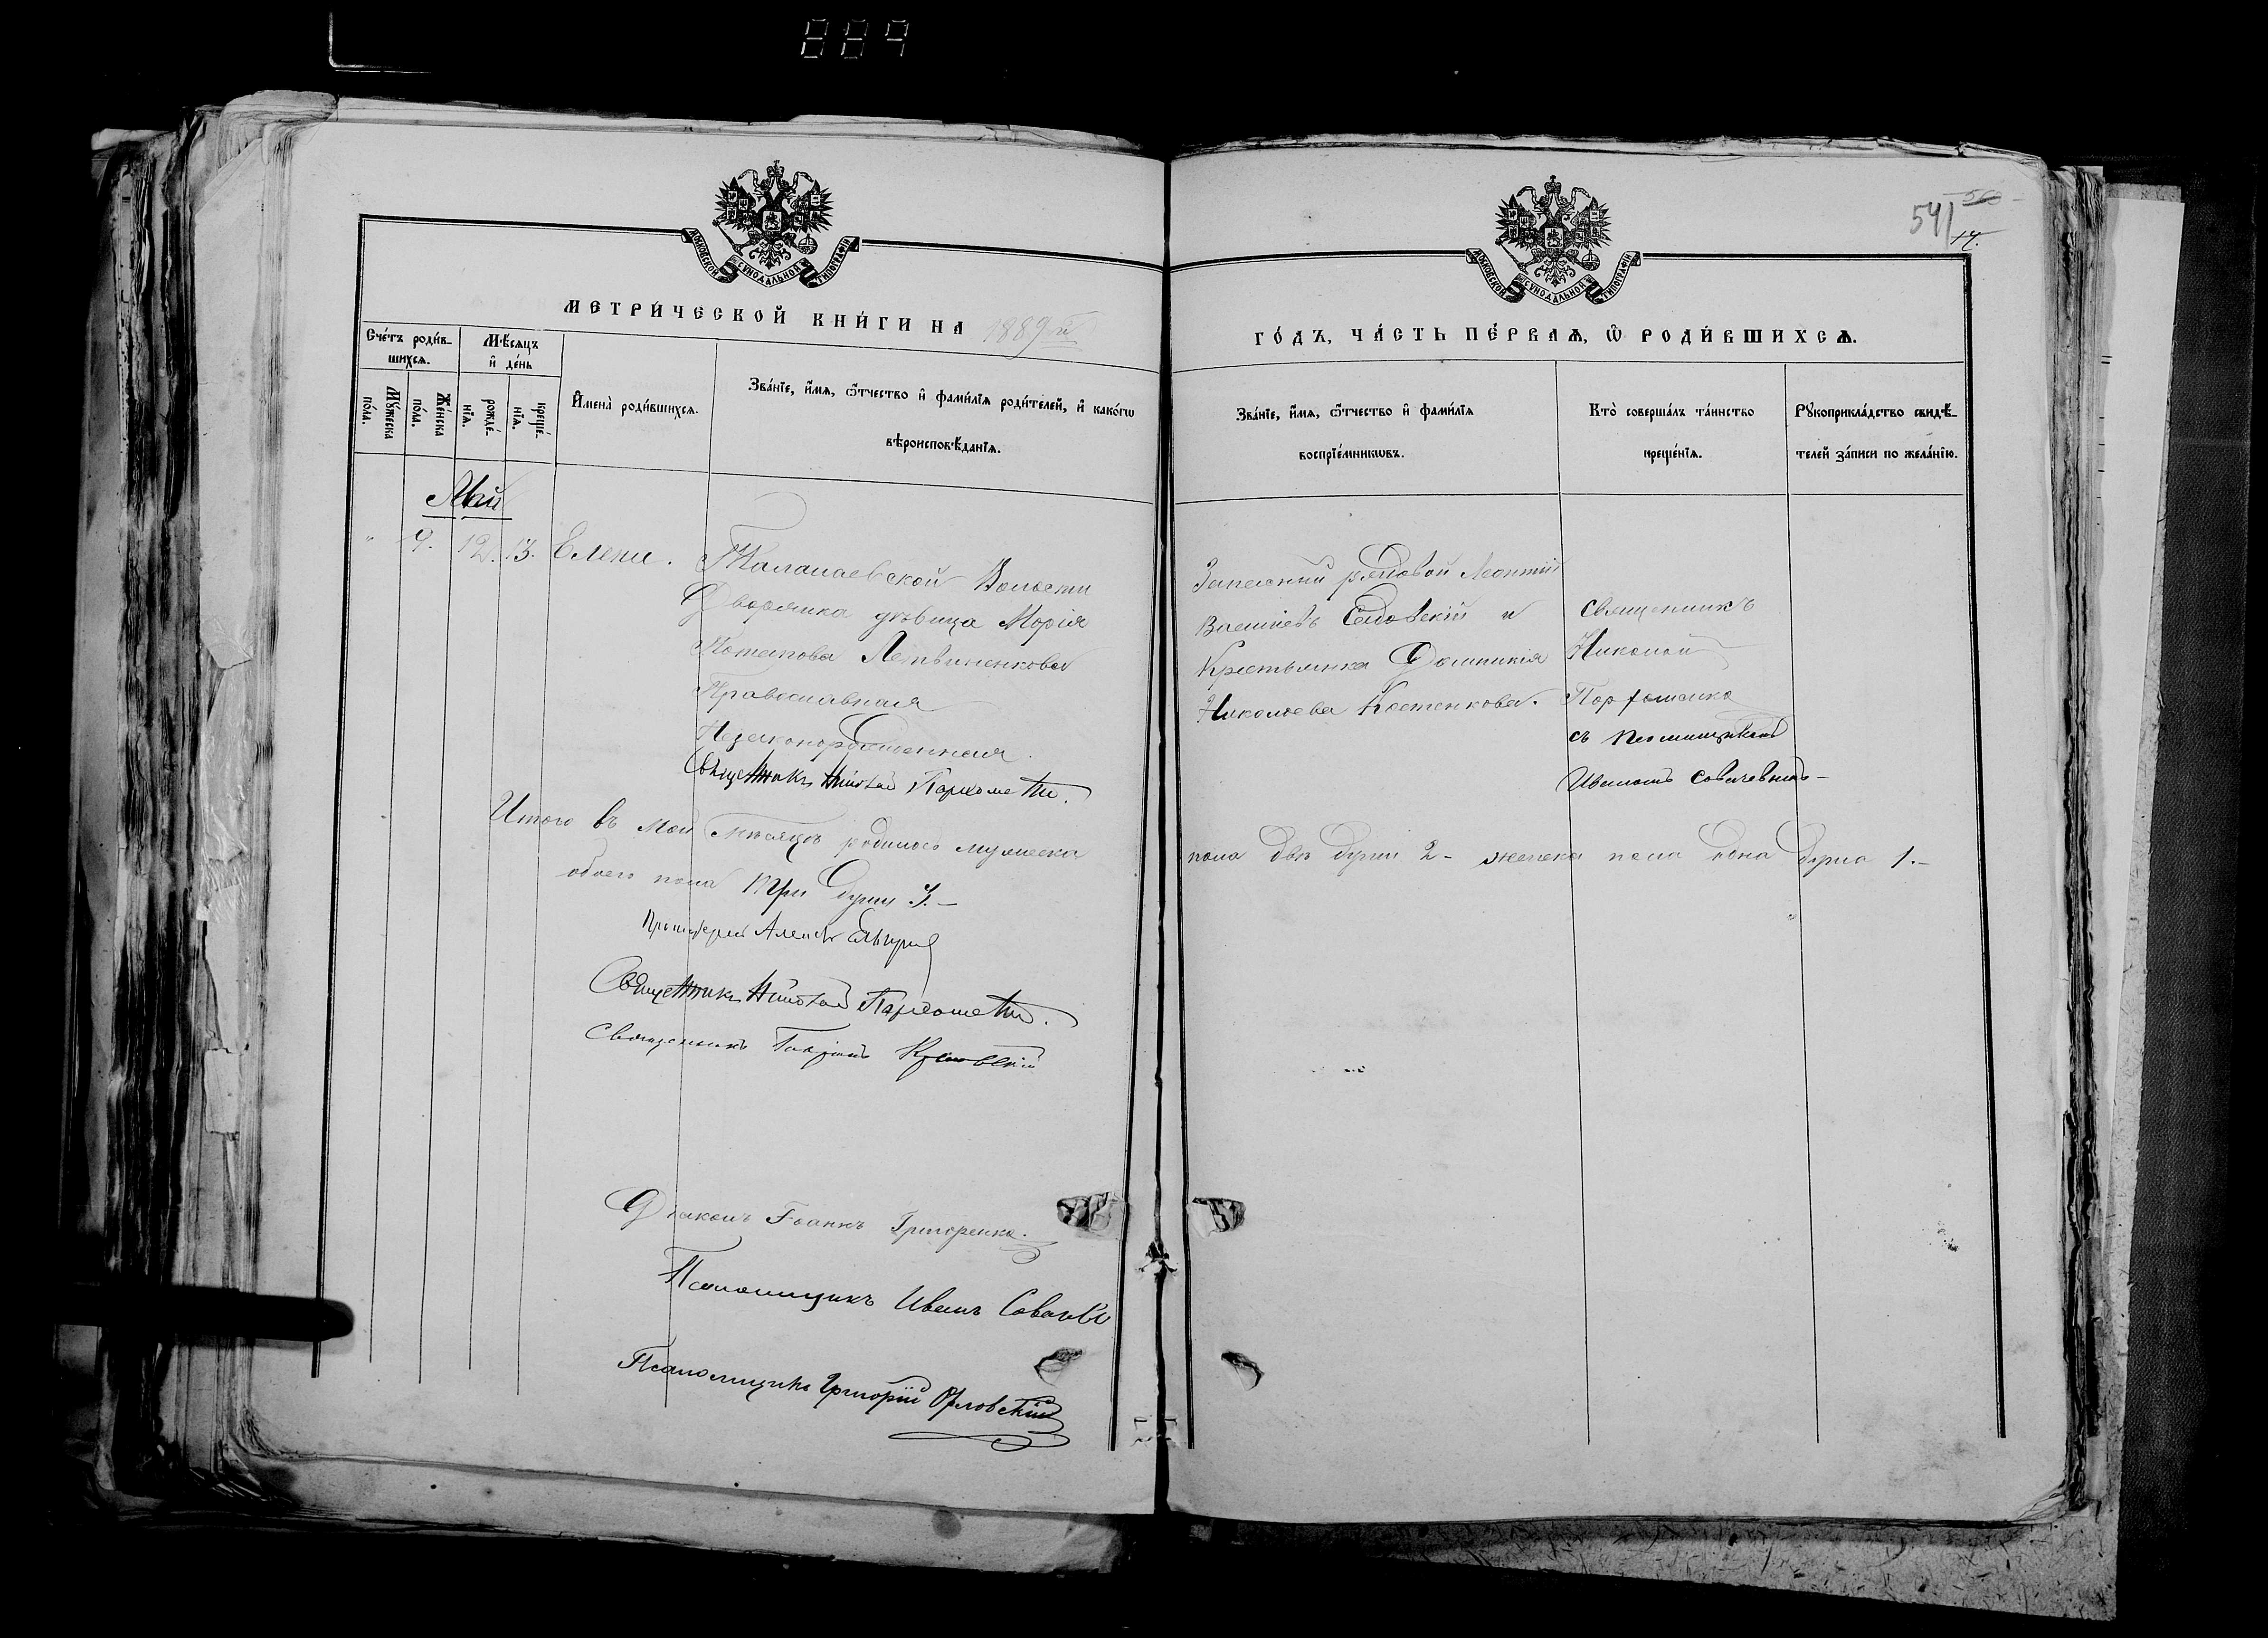 889
541
14.
МОСКОВСКОЙ СѴНОДАЛЬНОЙ ТИПОГРАФІИ
МОСКОВСКОЙ СѴНОДАЛЬНОЙ ТИПОГРАФІИ
МЕТРИ́ЧЕСКОЙ КНИ́ГИ НА 1889й
ГО́ДЪ, ЧА́СТЬ ПЕ́РВАѦ, Ѡ҆ РОДИ́ВШИХСѦ.
Сче́тъ роди́вшихсѧ.
Мꙋ́жеска по́ла.
Же́нска по́ла.
Мѣ́сѧцъ и҆ де́нь
рожде́нїѧ.
креще́нїѧ.
И҆мена̀ роди́вшихсѧ.
Зва́нїе, и҆́мѧ, ѻ҆́тчество и҆ фами́лїѧ роди́телей, и҆ како́гѡ
вѣроисповѣ́данїѧ.
Зва́нїе, и҆́мѧ, ѻ҆́тчество и҆ фами́лїѧ
воспрїе́мникѡвъ.
Кто̀ соверша́лъ та́инство
креще́нїѧ.
Рꙋкоприкла́дство свидѣ́телей за́писи по жела́нїю.
Май
" 9. 12. 13. Елена.
Волости
Дворянка дѣвица Марія
Потапова Литвиненкова
Православная
Незаконорожденная.
Священникъ Николай Пархоменко.
Запасный рядовой Леонтій
Василіевъ Садовскій и
Крестьянка Домникія
Николаева Костенкова.
Священникъ
Николай
Пархоменко
съ Псаломщикомъ
Иваномъ
Итого въ Май мѣсяцъ родилось мужеска
пола двѣ души 2 - женска пола одна душа 1. -
обоего пола три души 3. -
Протоіерей
Священникъ Николай Пархоменко.
Священникъ
Діаконъ Іоаннъ Григоренко.
Псаломщикъ Иванъ
Псаломщикъ Григорій Орловскій